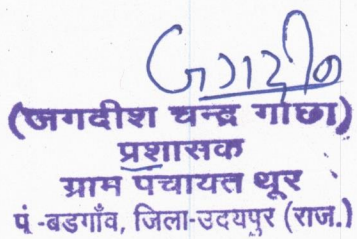 जगदीश
(जगदीश चन्द्र गोछा)
प्रशासक
ग्राम पंचायत थूर
पं -बडगाँव, जिला-उदयपुर (राज.)